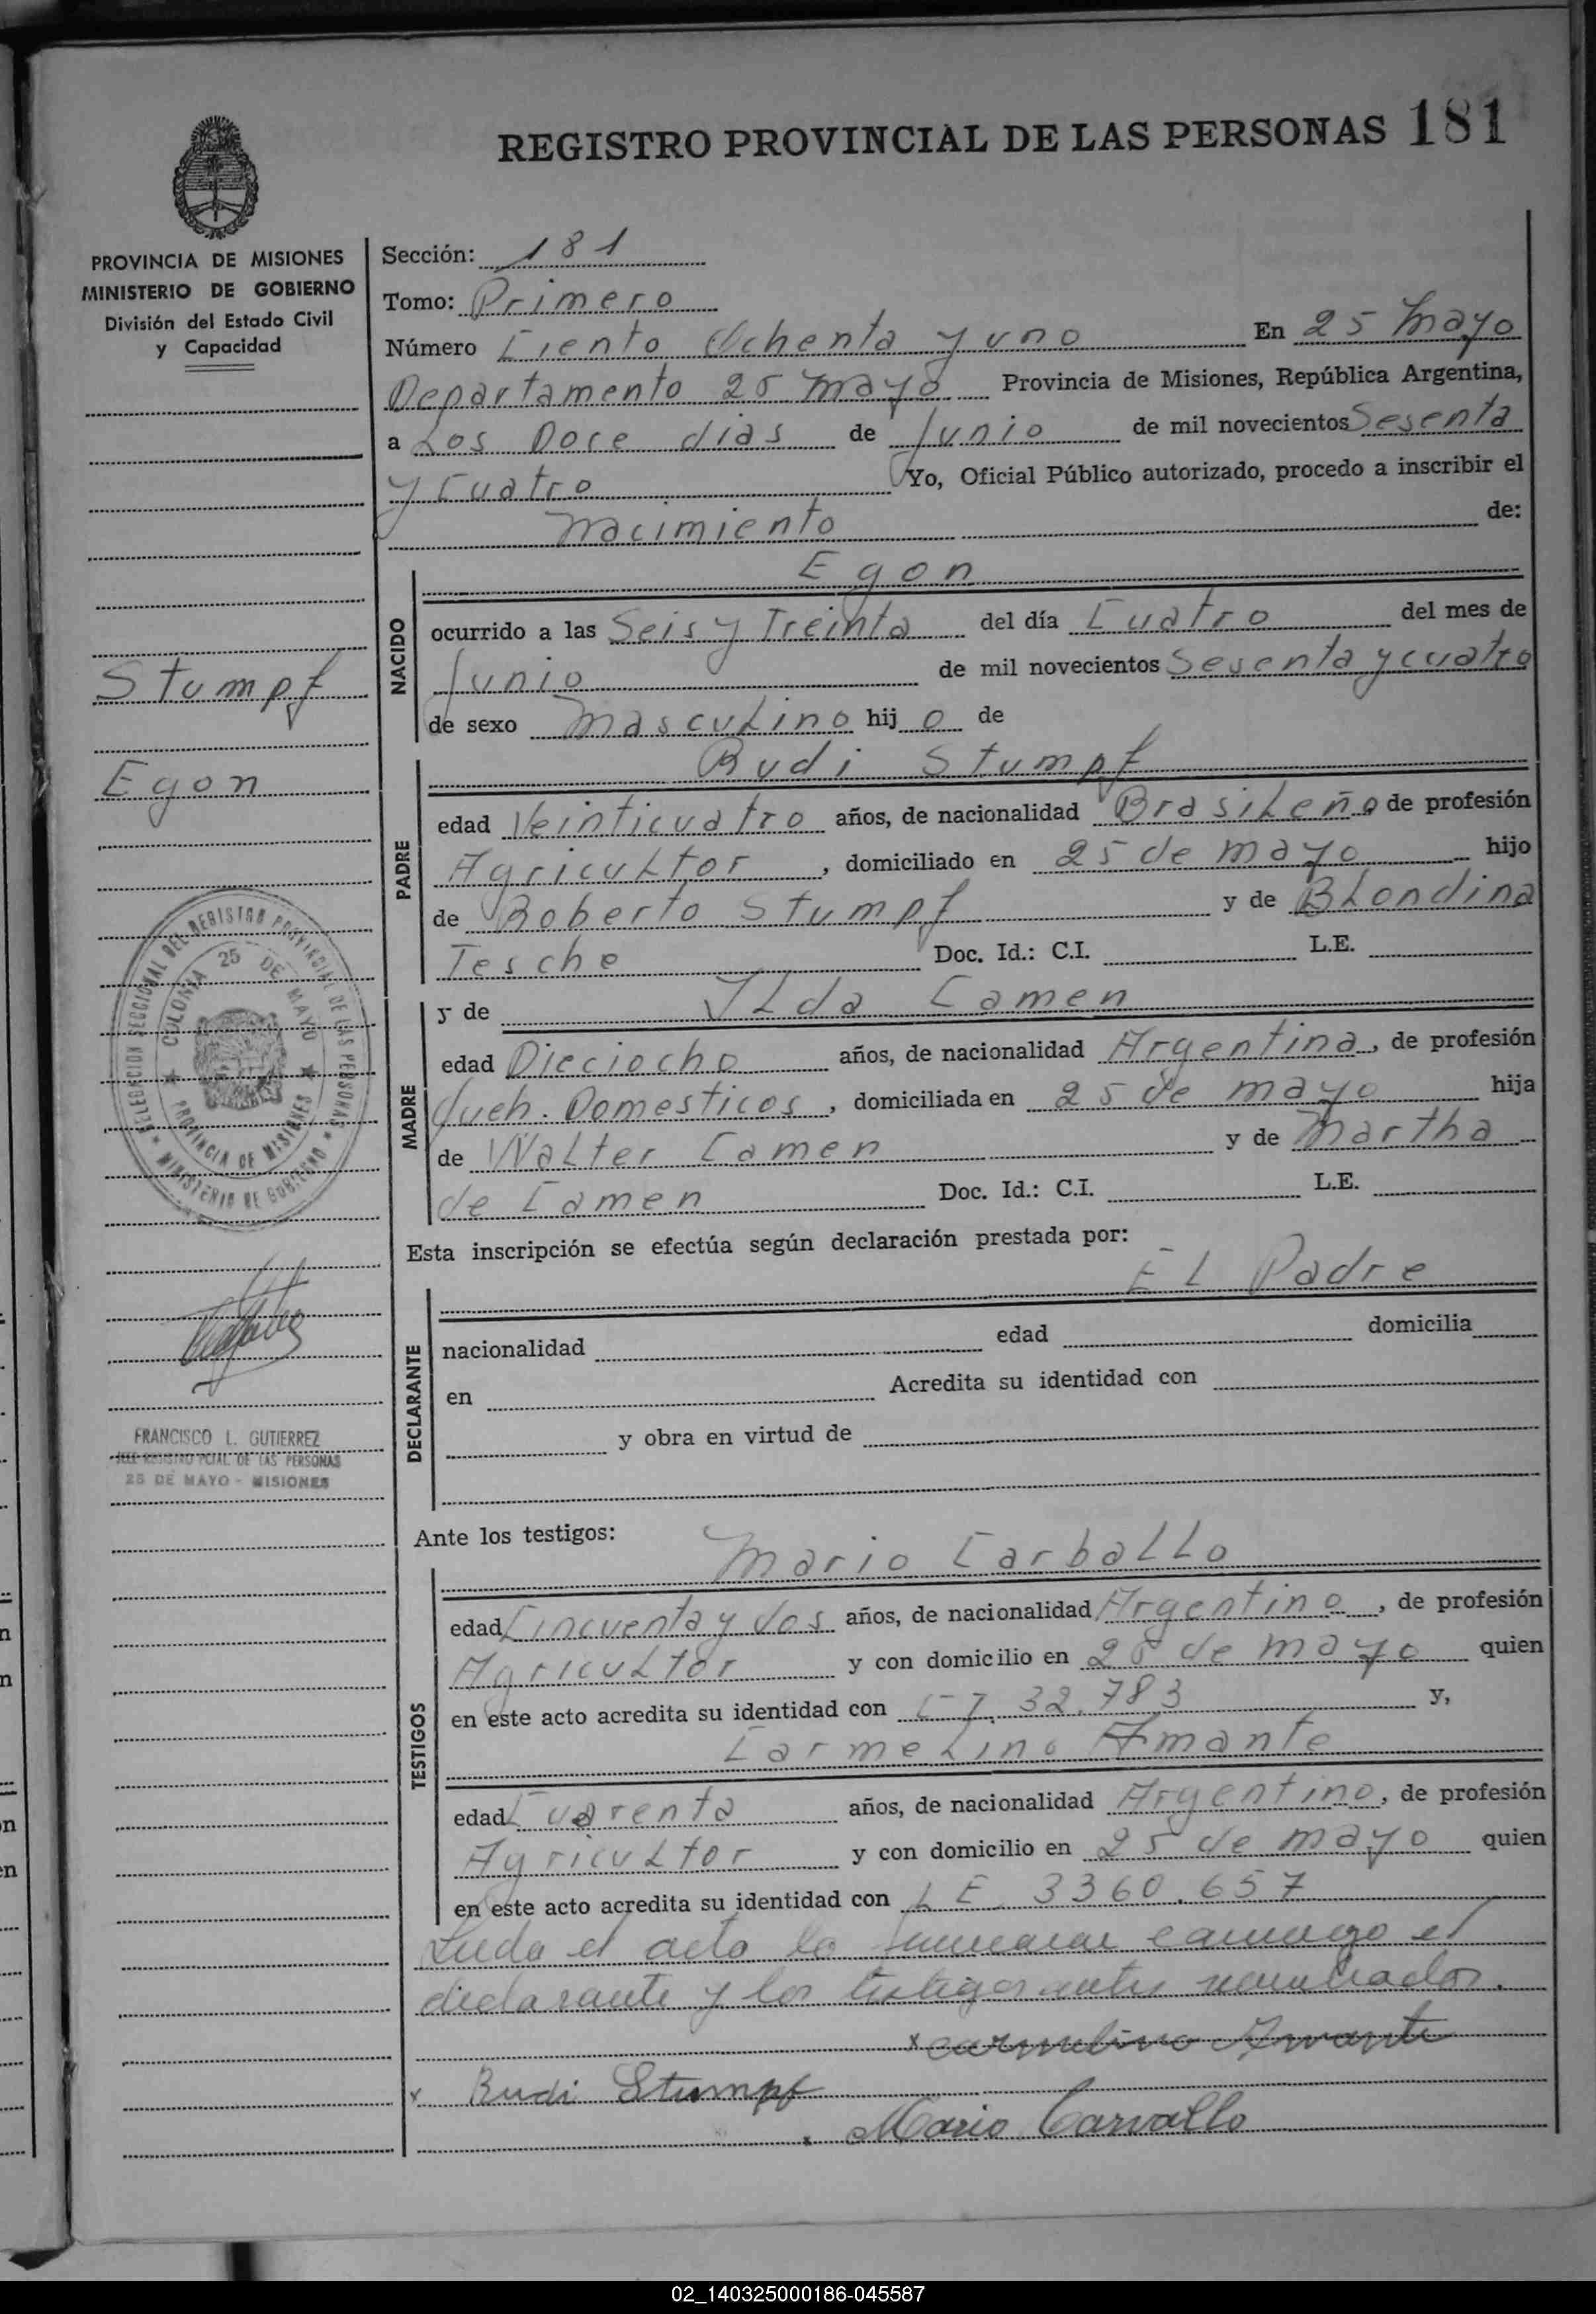 REGISTRO PROVINCIAL DE LAS PERSONAS 181
PROVINCIA DE MISIONES
MINISTERIO DE GOBIERNO
División del Estado Civil
y Capacidad
Stumpf
Egon
DELEGACION SECCIONAL DEL REGISTRO PROVINCIAL DE LAS PERSONAS
MINISTERIO DE GOBIERNO
COLONIA 25 DE MAYO
PROVINCIA DE MISIONES
FRANCISCO L. GUTIERREZ
JEFE REGISTRO PCIAL. DE LAS PERSONAS
25 DE MAYO - MISIONES
Sección: 181
Tomo: Primero
Número Ciento Ochenta y uno En 25 Mayo
Departamento 25 Mayo Provincia de Misiones, República Argentina,
a Los Doce dias de Junio de mil novecientos Sesenta
y Cuatro Yo, Oficial Público autorizado, procedo a inscribir el
Nacimiento de:
NACIDO
Egon
ocurrido a las Seis y Treinta del día Cuatro del mes de
Junio de mil novecientos Sesenta y cuatro
de sexo Masculino hijo de
PADRE
Rudi Stumpf
edad Veinticuatro años, de nacionalidad Brasileño de profesión
Agricultor, domiciliado en 25 de Mayo hijo
de Roberto Stumpf y de Blondina
Tesche Doc. Id.: C.I. L.E.
MADRE
y de Ilda Camen
edad Dieciocho años, de nacionalidad Argentina, de profesión
Queh. Domesticos, domiciliada en 25 de Mayo hija
de Walter Camen y de Martha
de Camen Doc. Id.: C.I. L.E.
Esta inscripción se efectúa según declaración prestada por:
DECLARANTE
El Padre
nacionalidad edad domicilia
en Acredita su identidad con
y obra en virtud de
Ante los testigos:
TESTIGOS
Mario Carballo
edad Cincuenta y dos años, de nacionalidad Argentino, de profesión
Agricultor y con domicilio en 25 de Mayo quien
en este acto acredita su identidad con CI. 32.783 y,
Carmelino Amante
edad Cuarenta años, de nacionalidad Argentino, de profesión
Agricultor y con domicilio en 25 de Mayo quien
en este acto acredita su identidad con L E. 3360.657
Leida el acta la firmaron conmigo el
declarante y los testigos antes nombrados.
x Carmelino Amante
x Rudi Stumpf
x Mario Carvallo
02_140325000186-045587